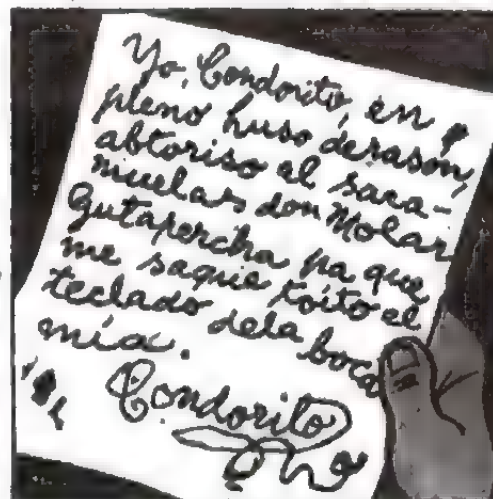 Yo, Condorito, en
pleno huso derason,
abtoriso al saca-
muelas don Molar
Gutapercha pa que
me saquie toito el
teclado dela boca
mía.
Condorito